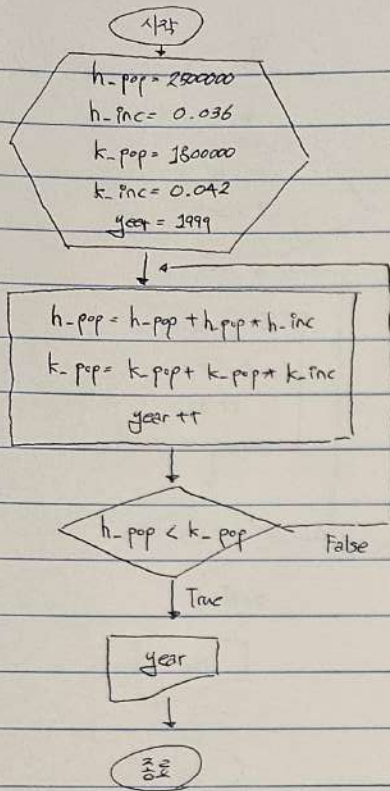 시작
h_pop = 2500000
h_inc = 0.036
k_pop = 1800000
k_inc = 0.042
year = 1999
h_pop = h_pop + h_pop * h_inc
k_pop = k_pop + k_pop * k_inc
year ++
h_pop < k_pop
False
True
year
종료